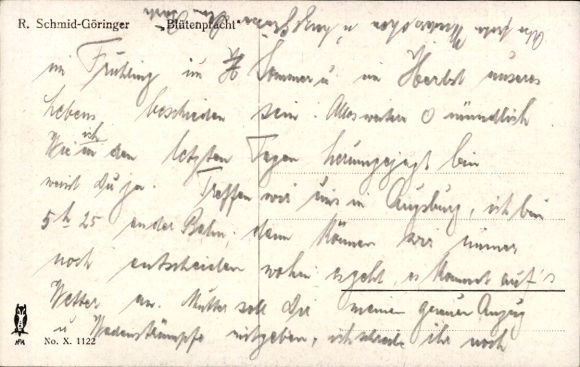 R. Schmid-Göringer "Blütenpracht"
im Frühling im H Sommer u. im Herbst unseres
Lebens beschieden sein. Alles weitere mündlich
Wie ich in den letzten Tagen herumgejagt bin
weist du ja. Treffen wir uns in Augsburg, ich bin
5h 25 an der Bahn, dann können wir immer
noch entscheiden wohin es geht, es kommt auf's
Wetter an. Mutter soll dir meinen grauen Anzug
u. Wadenstrümpfe mitgeben, ich schreibe ihr noch
No. X. 1122